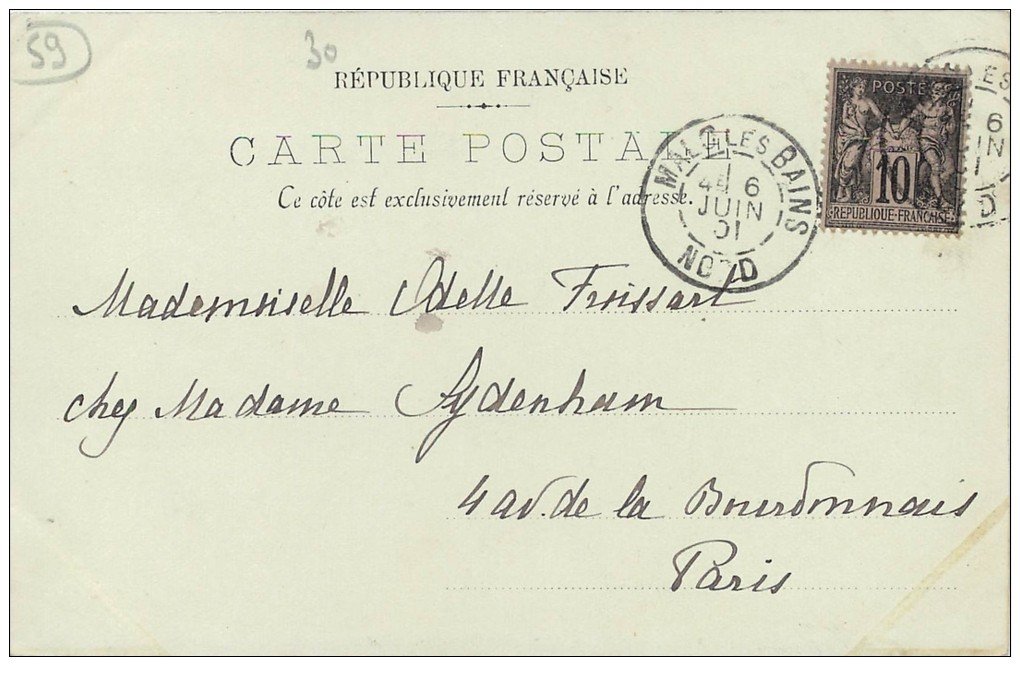 59
30
RÉPUBLIQUE FRANÇAISE
CARTE POSTALE
Ce côté est exclusivement réservé à l'adresse.
MALO LES BAINS
6
JUIN
01
NORD
POSTES
10
RÉPUBLIQUE-FRANÇAISE
LES
6
IN
D
Mademoiselle Odette Froissart
chez Madame Sydenham
4 av. de la Bourdonnais
Paris